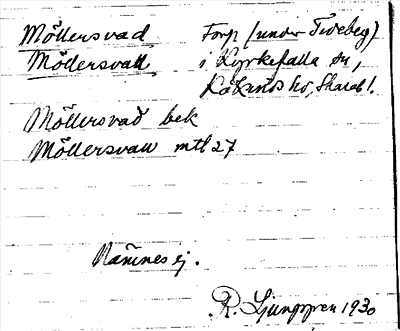 Möllersvad Torp (under Tivebeg)
Möllersvall i Kyrkefalla sn,
Kåkinds hd, Skarab l.
Möllersvad bek
Möllersvall mtl 27
Namnes ej.
R. Ljunggren 1930